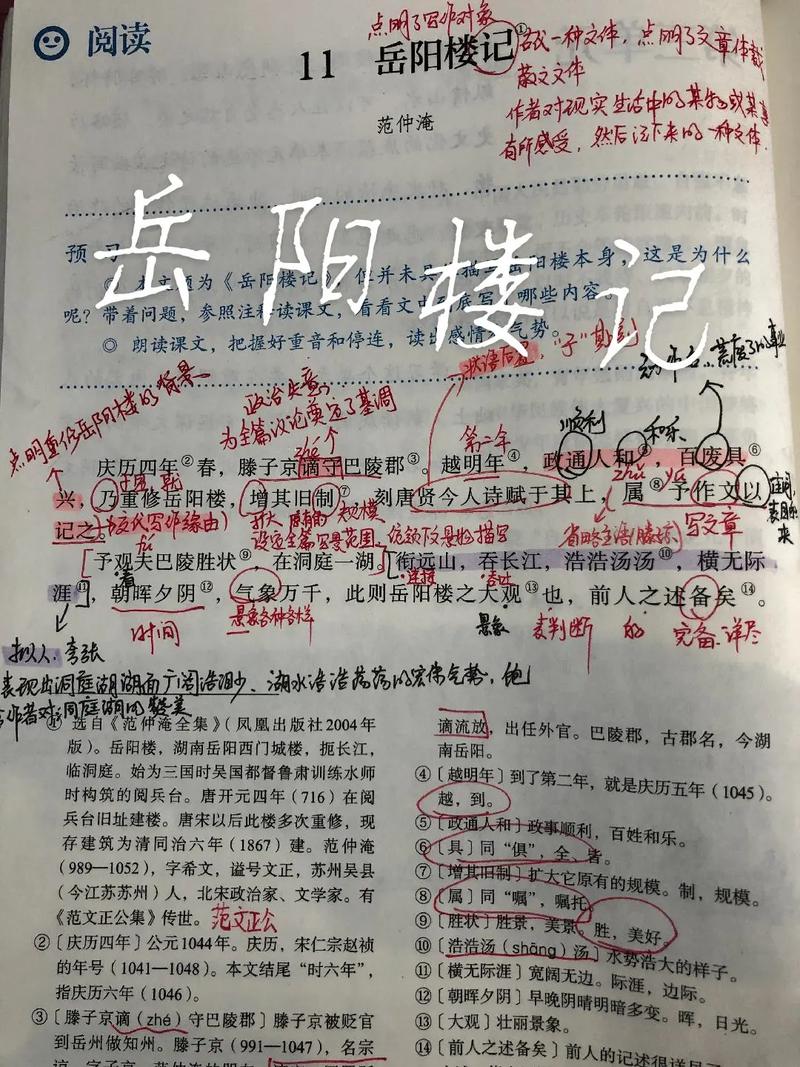 阅读
点明了写作对象
11 岳阳楼记①
范仲淹
记一种文体，点明了文章体裁
散文文体
作者对现实生活中的某物或某事
有所感受，然后记下来的一种文体
岳阳楼记
预 习
◎ 本文题为《岳阳楼记》，但并未具体描写岳阳楼本身，这是为什么
呢？带着问题，参照注释读课文，看看文中到底写了哪些内容。
◎ 朗读课文，把握好重音和停连，读出感情和气势。
状语后置，“于”
荒废了的事业
点明重修岳阳楼的背景
政治失意
为全篇议论奠定了基调
zhé
第二年
顺利
和乐
庆历四年②春，滕子京谪守巴陵郡③。越明年④，政通人和⑤，百废具⑥
zhǔ
兴，乃重修岳阳楼，增其旧制⑦，刻唐贤今人诗赋于其上，属⑧予作文以
记之。
交代写作缘由
扩大 原有的 规模
省略主语
写文章
予观夫巴陵胜状⑨，在洞庭一湖。衔远山，吞长江，浩浩汤汤⑩，横无际
fú
连接
涯⑪，朝晖夕阴⑫，气象万千，此则岳阳楼之大观⑬也，前人之述备矣⑭。
时间
景象各种各样
景象
表判断
的
完备、详尽
拟人、夸张
表现出洞庭湖湖面广阔浩渺、湖水浩浩荡荡的宏伟气势，饱
含作者对洞庭湖的赞美
① 选自《范仲淹全集》（凤凰出版社2004年
版）。岳阳楼，湖南岳阳西门城楼，扼长江，
临洞庭。始为三国时吴国都督鲁肃训练水师
时构筑的阅兵台。唐开元四年（716）在阅
兵台旧址建楼。唐宋以后此楼多次重修，现
存建筑为清同治六年（1867）建。范仲淹
（989—1052），字希文，谥号文正，苏州吴县
（今江苏苏州）人，北宋政治家、文学家。有
《范文正公集》传世。
范文正公
② 〔庆历四年〕公元1044年。庆历，宋仁宗赵祯
的年号（1041—1048）。本文结尾“时六年”，
指庆历六年（1046）。
③ 〔滕子京谪（zhé）守巴陵郡〕滕子京被贬官
到岳州做知州。滕子京（991—1047），名宗
谪流放，出任外官。巴陵郡，古郡名，今湖
南岳阳。
④ 〔越明年〕到了第二年，就是庆历五年（1045）。
越，到。
⑤ 〔政通人和〕政事顺利，百姓和乐。
⑥ 〔具〕同“俱”，全、皆。
⑦ 〔增其旧制〕扩大它原有的规模。制，规模。
⑧ 〔属〕同“嘱”，嘱托。
⑨ 〔胜状〕胜景，美景。胜，美好。
⑩ 〔浩浩汤（shāng）汤〕水势浩大的样子。
⑪ 〔横无际涯〕宽阔无边。际涯，边际。
⑫ 〔朝晖夕阴〕早晚阴晴明暗多变。晖，日光。
⑬ 〔大观〕壮丽景象。
⑭ 〔前人之述备矣〕前人的记述很详尽了